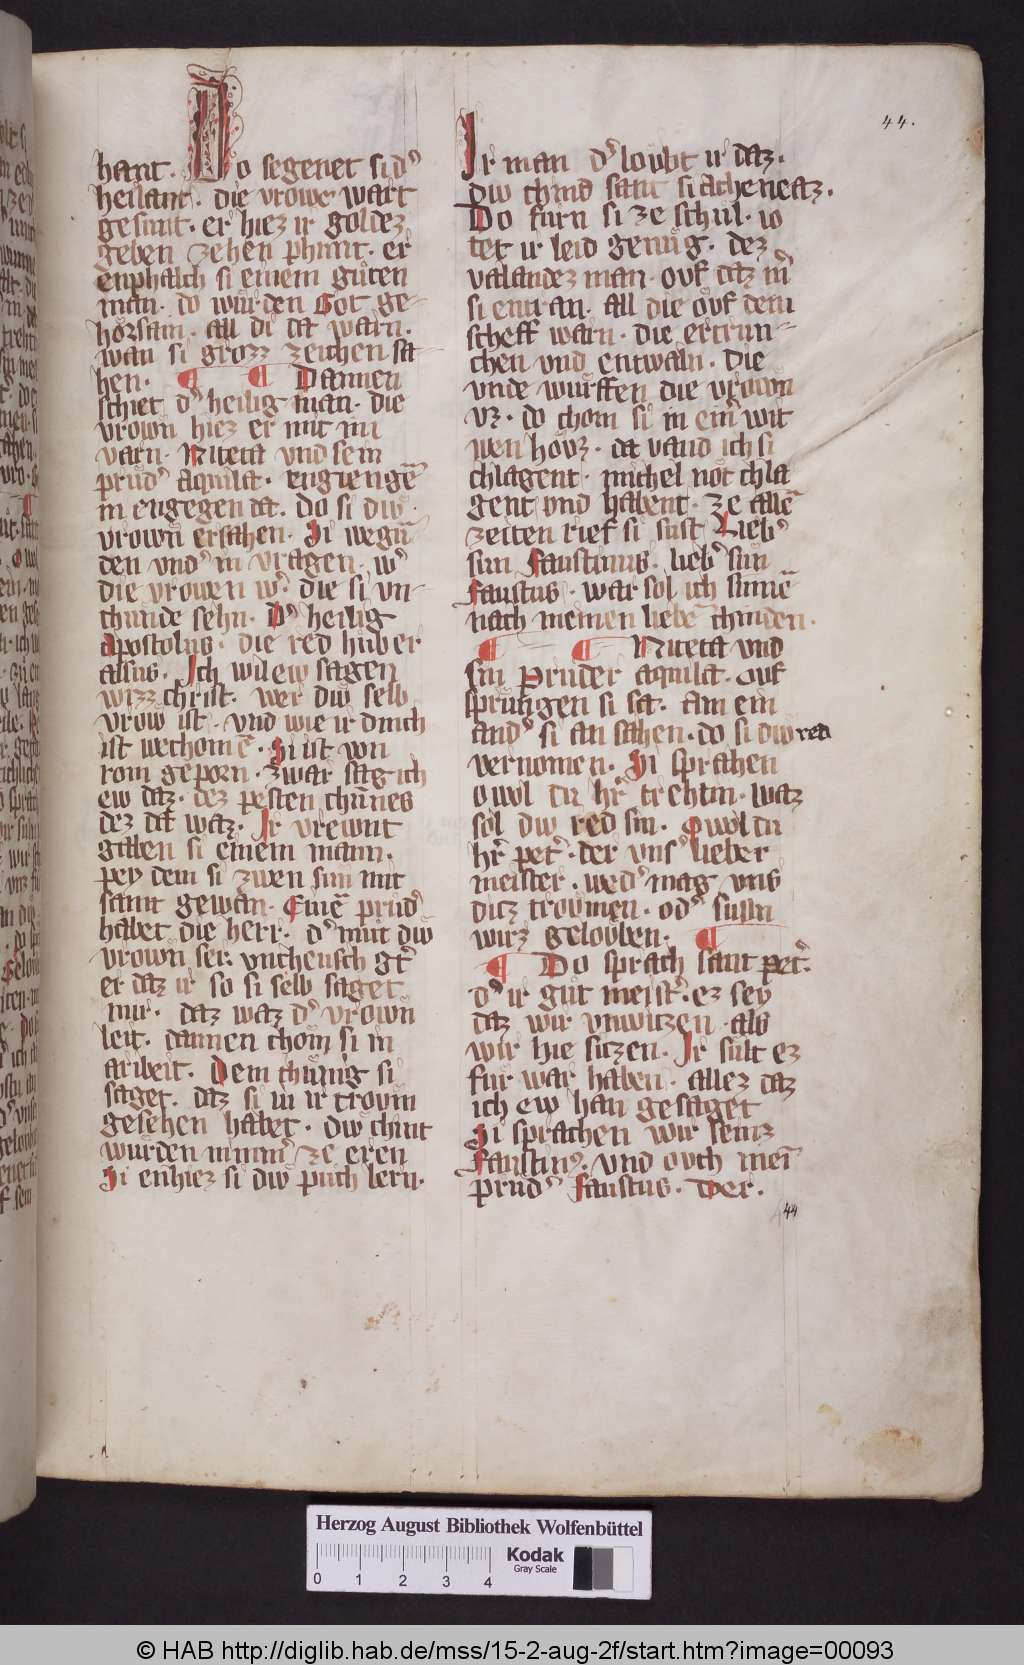 44.
hant. Do segenet si dˢ
heilant. die vrowe wart
gesunt. er hiez ir goldez
geben zehen phunt. er
enphalch si einem guͦten
man. do wuͤrden Got ge-
hoͤrsam. all di da warn.
wan si grozz zeichen sa-
hen. ¶ ¶ Dannen
schiet dˢ heilig man. die
vrown hiez er mit im
varn. Niceta vnd sein
pruͦdˢ aquila. engiengē
in engegen da. Do si diw
vrown ersahen. Si wegū
den vndˢ in vragen. wˢ
die vrowen wˢ. die si vn-
chunde sehn. Dˢ heilig
Apostolus. die red huͦb er
alsus. Ich wil ew sagen
wizz christ. wer diw selb
vrow ist. vnd wie ir dinch
ist wechomē. Si ist von
rom geporn. zwar sag ich
ew daz. dez pesten chuͤnnes
dez da waz. Ir vrewnt
gaben si einem mann.
pey dem si zwen sun mit
samt gewan. Einē pruͦdˢ
habet die herr. dˢ muͤt diw
vrown ser. vncheusch gˢt
er daz ir so si selb saget
mir. daz waz dˢ vrown
leit. dannen chom si in
aribeit. Dem chuͤnig si
saget. daz si in ir troum
gesehen habet. diw chint
wurden nimmˢ ze eren
Si enhiez si diw puͦch lern.
Ir man dˢ loubt ir daz.
diw chind sant si Atheneaz.
Do furn si ze schuͦl. so
tet ir leid genuͦg. dez
valandez man. ouf daz mˢ
si entran. all die ouf dem
scheff warn. die ertrun-
chen vnd entwaln. Die
vnde wuͤrffen die vrown
vz. do chom si in ein wit
wen houz. da vand ich si
chlagent. michel not chla
gent vnd habent. ze allē
zeiten rief si sust Liebˢ
sun Faustinus. liebˢ sun
Faustus. war sol ich sinnē
nach meinen liebē chinden.
¶ ¶ Niceta vnd
sin pruder aquila. Ouf
sprungen si sa. an ein
andˢ si an sahen. do si diw red
vernomen. Si sprahen
owol du hˢr trehtin. waz
sol diw red sin. Owol du
hˢr petˢ. der vnsˢ lieber
meister. wedˢ mag vns
ditz troumen. odˢ suln
wirz gelouben. ¶
¶ Do sprach sant petˢ.
dˢ ir guͦt meistˢ. ez sey
daz wir vnwitzen. als
wir hie sitzen. Ir sult ez
fuͤr war haben. allez daz
ich ew han gesaget
Si sprachen wir seinz
Faustin⁹. vnd ouch mein
pruͦdˢ Faustus. Der.
44
Herzog August Bibliothek Wolfenbüttel
0 1 2 3 4
Kodak
Gray Scale
© HAB http://diglib.hab.de/mss/15-2-aug-2f/start.htm?image=00093